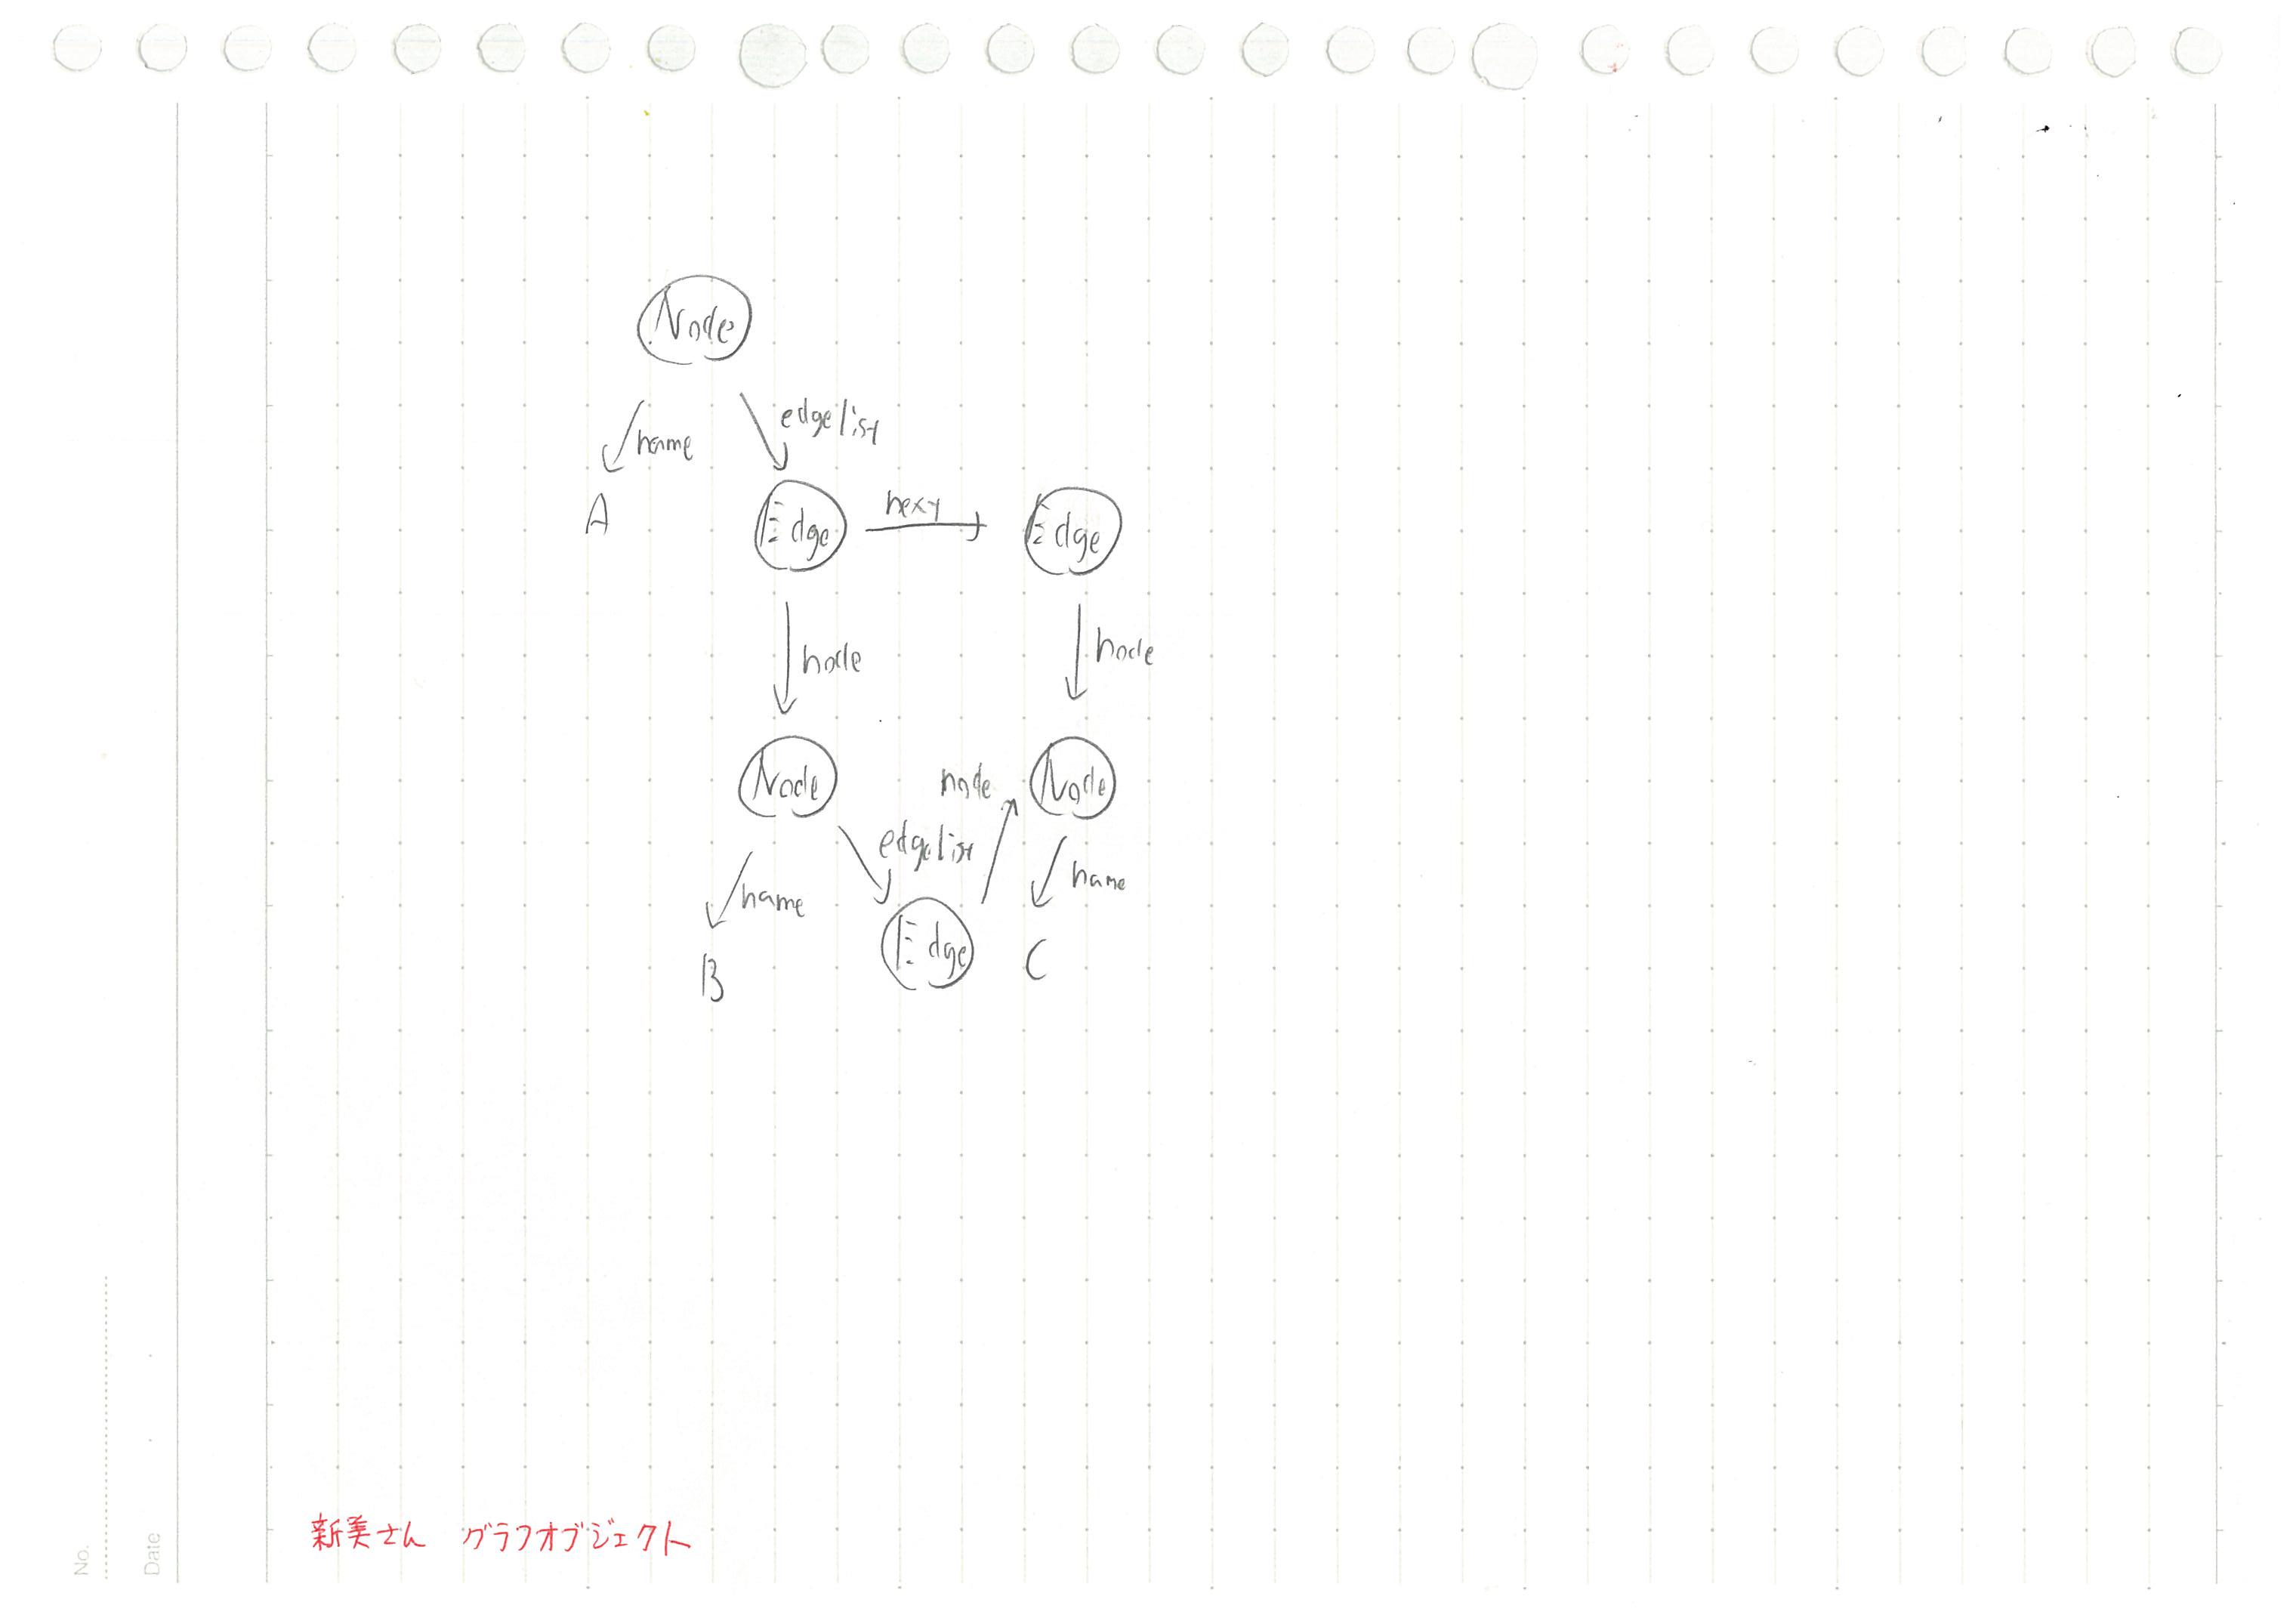 Node
name
edgelist
A
Edge
next
Edge
node
node
Node
node
Node
edgelist
name
name
B
Edge
C
新美さん グラフオブジェクト
No.
Date